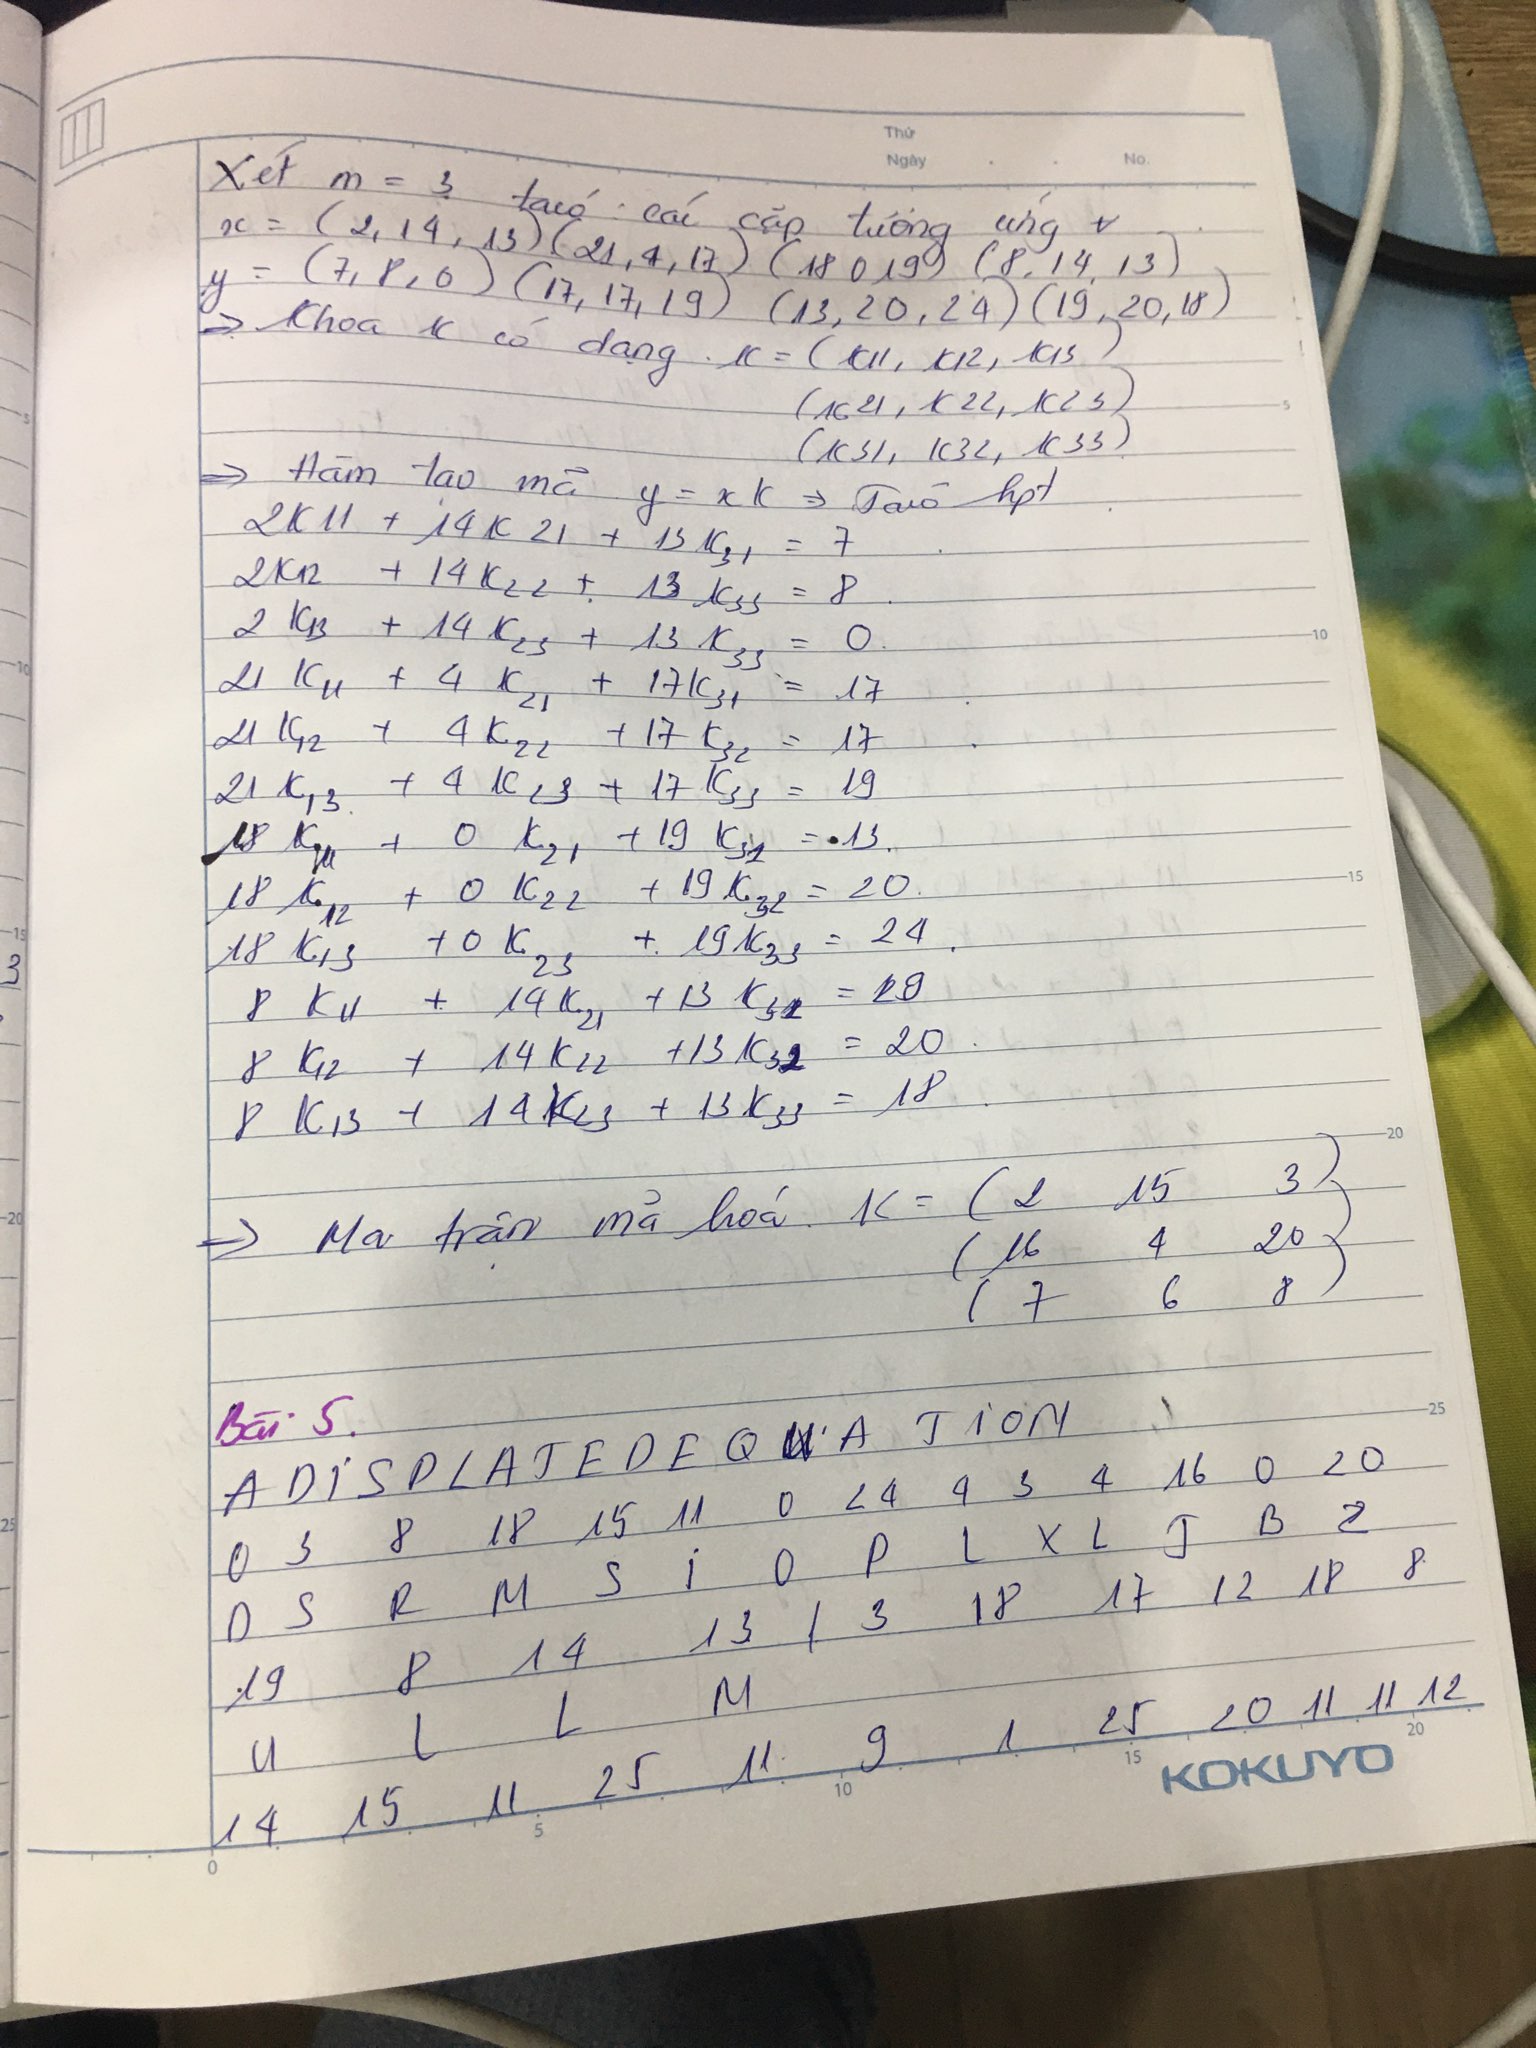 Thứ
Ngày . . No.
Xét m = 3 ta có: các cặp tương ứng
x = (2, 14, 13) (21, 4, 17) (18 0 19) (8, 14, 13)
y = (7, 8, 0) (17, 17, 19) (13, 20, 24) (19, 20, 18)
⇒ Khoa K có dạng. K = (K11, K12, K13)
(K21, K22, K23)
(K31, K32, K33)
⇒ Hàm tạo mã y = xK ⇒ Ta có hpt
2K11 + 14K21 + 13K31 = 7
2K12 + 14K22 + 13K33 = 8
2K13 + 14K23 + 13K33 = 0
21K11 + 4K21 + 17K31 = 17
21K12 + 4K22 + 17K32 = 17
21K13 + 4K23 + 17K33 = 19
18K11 + 0K21 + 19K31 = 13
18K12 + 0K22 + 19K32 = 20
18K13 + 0K23 + 19K33 = 24
8K11 + 14K21 + 13K31 = 19
8K12 + 14K22 + 13K32 = 20
8K13 + 14K23 + 13K33 = 18
⇒ Ma trận mã hoá. K = (2 15 3)
(16 4 20)
(7 6 8)
Bài 5.
A D I S P L A T E D E Q U A T I O N
0 3 8 18 15 11 0 24 4 3 4 16 0 20
D S R M S I O P L X L J B Z
19 8 14 13 / 3 18 17 12 18 8
U L L M
14 15 11 25 11 9 1 25 20 11 11 12
KOKUYO
0 5 10 15 20
5
10
15
20
25